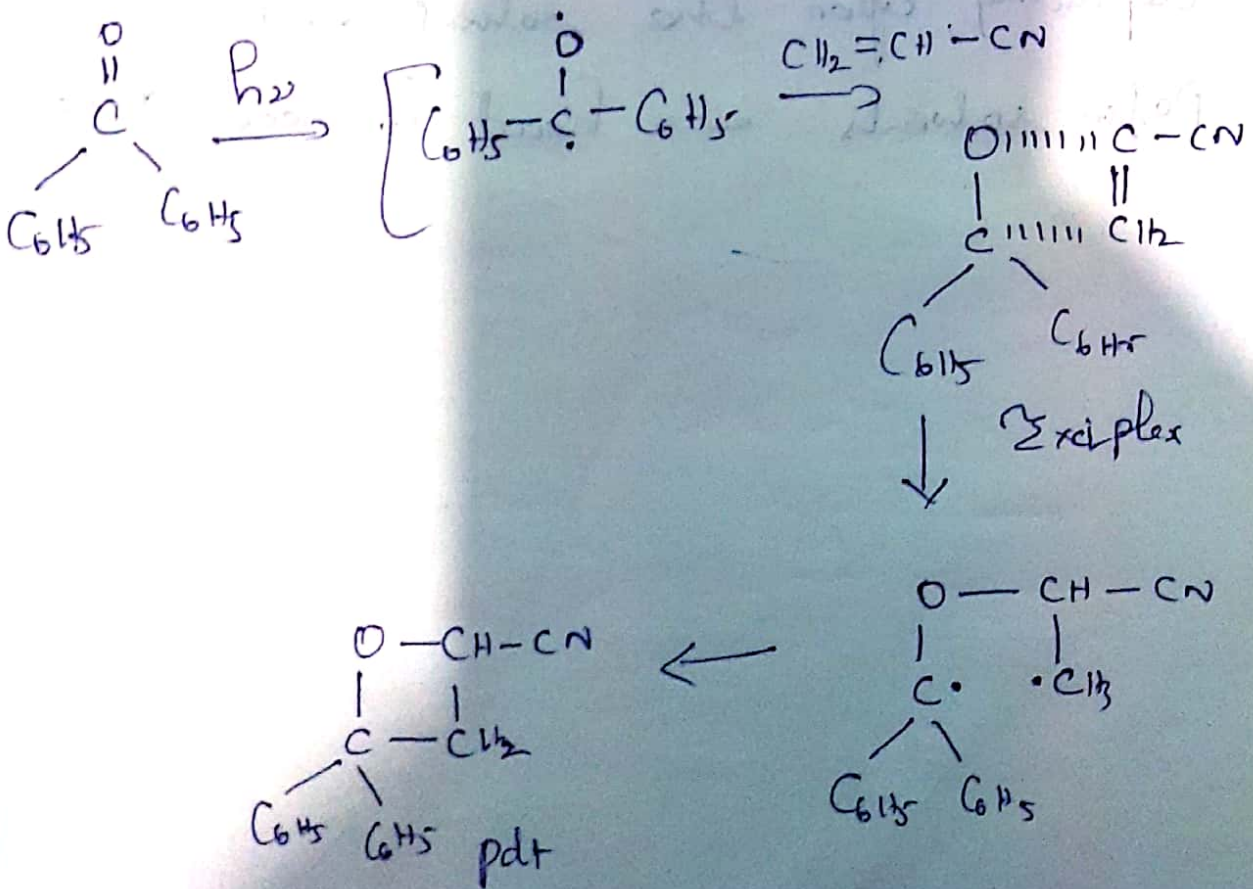 O
||
C
C6H5 C6H5
hν
[ C6H5 – Ċ – C6H5
Ȯ
CH2 = CH – CN
O ıııııı C – CN
||
C ıııııı CH2
C6H5 C6H5
Exciplex
O — CH — CN
C· ·CH2
C6H5 C6H5
O — CH – CN
C — CH2
C6H5 C6H5 pdt